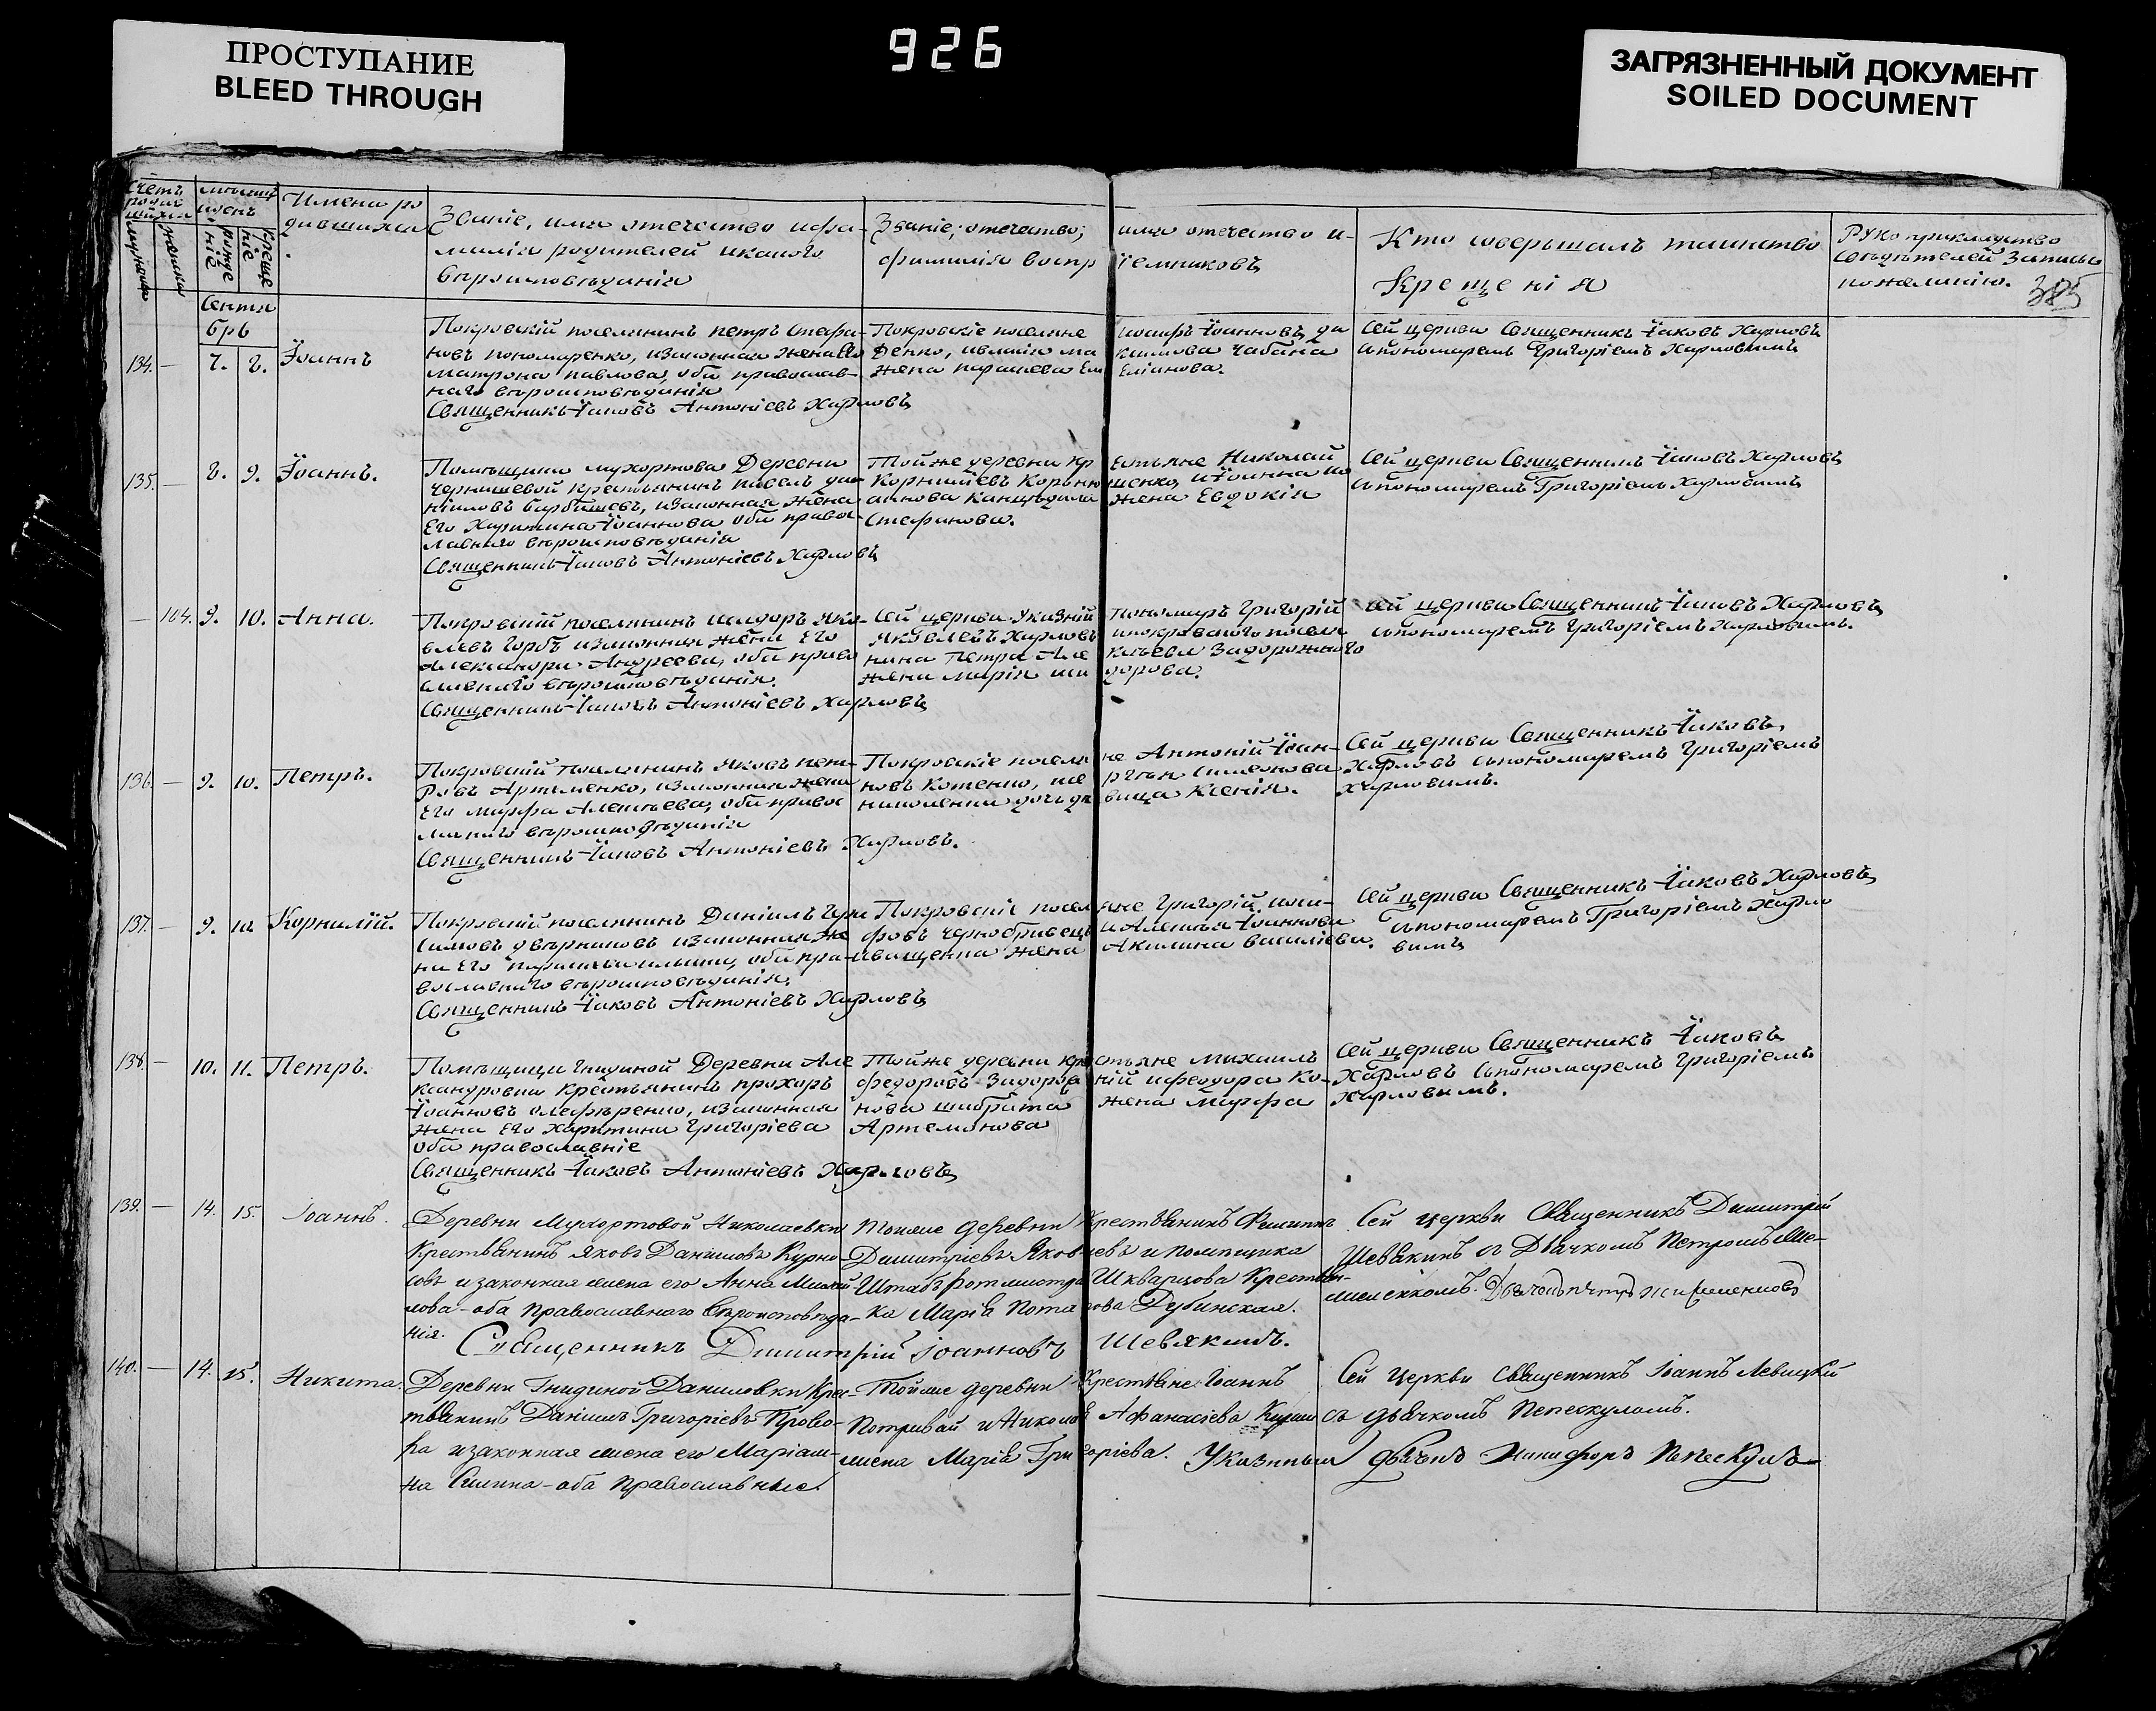 ПРОСТУПАНИЕ
BLEED THROUGH
926
ЗАГРЯЗНЕННЫЙ ДОКУМЕНТ
SOILED DOCUMENT
Счетъ родив
шихся
мужеска
женска
мѣсяцъ
и день
рожденіе
крещеніе
Имена ро
дившихся
Званіе, имя отечество и фа-
милія родителей и какого
вѣроисповѣданія
Званіе, отечество, имя отечество и
фамилія воспріемниковъ
Кто совершалъ таинство
Крещенія
Рукоприкладство
свидѣтелей записи
по желанію.
385
Сентя
брь
134. — 7. 8. Іоаннъ
Покровскій поселянинъ петръ Стефа-
новъ пономаренко, изаконная жена Его
матрона павлова, оба православ-
наго вѣроисповѣданія
Священникъ Іаковъ Антоніевъ Харловъ
Покровскіе поселяне Іосифъ Іоанновъ
жена
Сей церкви Священникъ Іаковъ Харловъ
съпономаремъ Григоріемъ Харловымъ
135. — 8. 9. Іоаннъ.
Помѣщика мухортова Деревни
Чернышевой крестьянинъ павелъ да
ніиловъ изаконная жена
Его Харитина Іоаннова оба правос-
лавнаго вѣроисповѣданія
Священникъ Іаковъ Антоніевъ Харловъ
Тойже деревни крестьяне Николай
Корниліевъ
жена Евдокія
Стефанова.
Сей церкви Священникъ Іаковъ Харловъ
съпономаремъ Григоріемъ Харловымъ
— 104. 9. 10. Анна.
Покровскій поселянинъ исидоръ Яко-
влевъ Горбъ изаконная жена Его
Александра Андреева, оба право
славнаго вѣроисповѣданія.
Священникъ Іаковъ Антоніевъ Харловъ
Сей церкви Указній пономарь Григорій
Яковлевъ Харловъ ипокровскаго поселя
нина Петра Алексѣева Задорожнаго
жена марія
Сей церкви Священникъ Іаковъ Харловъ
съпономаремъ Григоріемъ Харловымъ.
136. — 9. 10. Петръ.
Покровскій поселянинъ Яковъ пет-
ровъ Артеменко, изаконная жена
Его марфа Алексѣева, оба правос
лавнаго вѣроисповѣданія
Священникъ Іаковъ Антоніевъ Харловъ.
Покровскіе поселяне Антоній Іоан-
новъ Котенко,
дочь дѣвица Ксенія.
Сей церкви Священникъ Іаковъ
Харловъ съпономаремъ Григоріемъ
Харловымъ.
137. — 9. 10. Корнилій.
Покровскій поселянинъ Даніилъ
изаконная же
на Его параскева ильина, оба пра-
вославнаго вѣроисповѣданія,
Священникъ Іаковъ Антоніевъ Харловъ
Покровскіе поселяне Григорій
Чернобривецъ и Алексѣя Іоаннова
Иващенка жена Акилина Василіева.
Сей церкви Священникъ Іаковъ Харловъ
съпономаремъ Григоріемъ Харло
вымъ
138. — 10. 11. Петръ.
Помѣщицы гнидиной Деревни Але
ксандровки Крестьянинъ прохоръ
Іоанновъ олефиренко, изаконная
жена Его Харитина Григоріева
Оба православніе
Священникъ Іаковъ Антоніевъ Харловъ
Тойже деревни крестьяне михаилъ
федоровъ ифеодора Ко-
нова жена марфа
Артемонова
Сей церкви Священникъ Іаковъ
Харловъ съпономаремъ Григоріемъ
Харловымъ.
139. — 14. 15. Іоаннъ.
Деревни Мухортовой Николаевки
Крестьянинъ Яковъ Даниловъ Курно
совъ и законная жена его Анна Михай
лова – оба Православнаго Вѣроисповѣда-
нія. Священникъ Димитрій Іоанновъ Шевякинъ.
Тойже деревни Крестьянинъ Филиппъ
Димитріевъ Яковлевъ и помѣщика
Штабъ ротмистра Шкварцова Крестьян-
ка Марія Потапова Дубинская.
Сей церкви Священникъ Димитрій
Шевякинъ съ Дьячкомъ Петромъ
140. — 14. 15. Никита.
Деревни Гнидиной Даниловки Крес-
тьянинъ Даніилъ Григоріевъ
и законная жена его Маріам-
на – оба Православные.
Тойже деревни Крестьяне Іоаннъ
Потривай и Николая Афанасіева
жена Марія Григоріева.
Сей церкви Священникъ Іоаннъ Левицкій
съ дьячкомъ Пепескуломъ.
Указный дьячокъ Никифоръ Пепескулъ